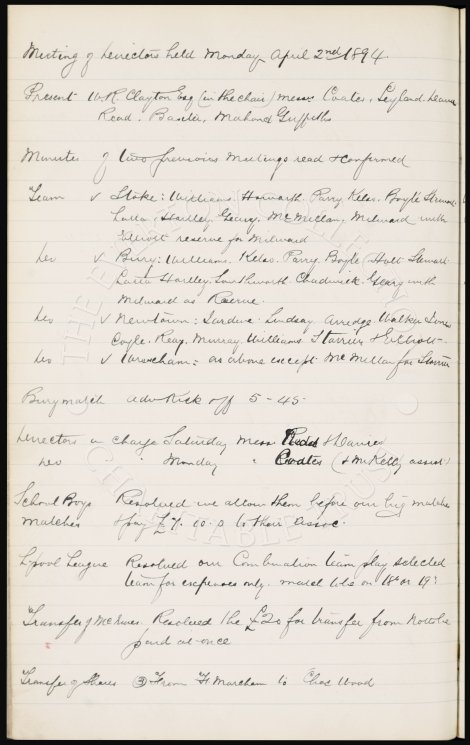 Meeting of Directors held Monday April 2nd 1894.
Present W.R. Clayton Esq (in the chair) Messrs Coates, Leyland. Davies
Read. Baxter, Mahon & Griffiths
Minutes of two previous Meetings read & confirmed
Team v Stoke: Williams. Howarth. Parry. Kelso. Boyle Stewart
Latta. Hartley. Geary. McMillan. Milward with
Elliott reserve for Milward
Do v Bury: Williams. Kelso. Parry. Boyle Holt Stewart
Latta Hartley Southworth. Chadwick. Geary with
Milward as Reserve.
Do v Newtown: Jardine. Lindsay. Arridge. Walker Jones
Coyle. Reay. Murray. Williams Storrier & Elliott
Do v Wrexham: as above except McMillan for Storrier
Bury match adv Kick off 5-45
Directors in charge Saturday Messrs Read & Davies
Do " Monday " Coates (& Mr Kelly assist)
School Boys Resolved we allow them before our big matches
Matches & pay £7.10.0 to their Assoc.
Lpool League Resolved our Combination team play selected
team for expenses only. Match to be on 18th or 19th
Transfer of McInnes. Resolved the £20 for transfer from Notts be
paid at once
Transfer of Shares 3 From H Marcham to Chas Wood
THE
CHARITABLE TRUST